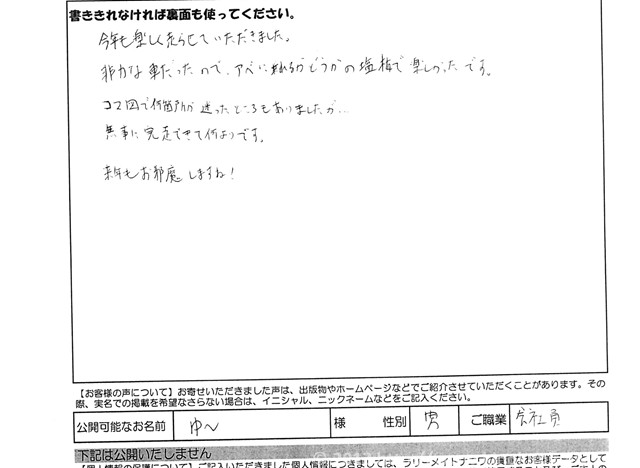 書ききれなければ裏面も使ってください。
今年も楽しく走らせていただきました。
非力な車だったので、アベに乗れるかどうかの塩梅で楽しかったです。
コマ図で何箇所か迷ったところもありましたが…
無事に完走できて何よりです。
来年もお邪魔しますね!
【お客様の声について】お寄せいただきました声は、出版物やホームページなどでご紹介させていただくことがあります。その
際、実名での掲載を希望なさらない場合は、イニシャル、ニックネームなどをご記入ください。
公開可能なお名前 ゆ〜 様 性別 男 ご職業 会社員
下記は公開いたしません
【個人情報の保護について】ご記入いただきました個人情報につきましては、ラリーメイトナニワの貴重なお客様データとして